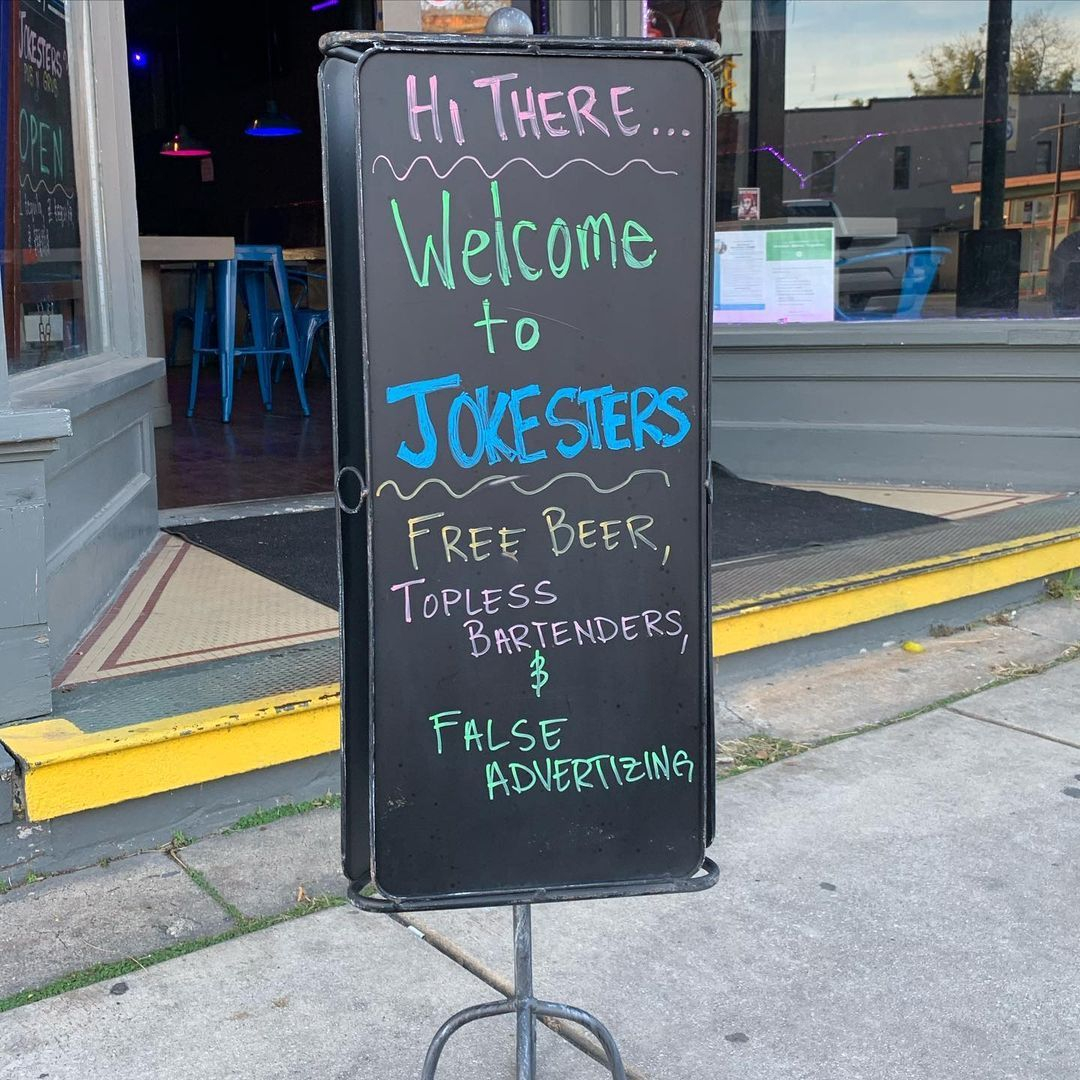 Hi There...
Welcome
to
JOKESTERS
FREE BEER,
TOPLESS
BARTENDERS,
&
FALSE
ADVERTIZING
JOKESTERS
OPEN